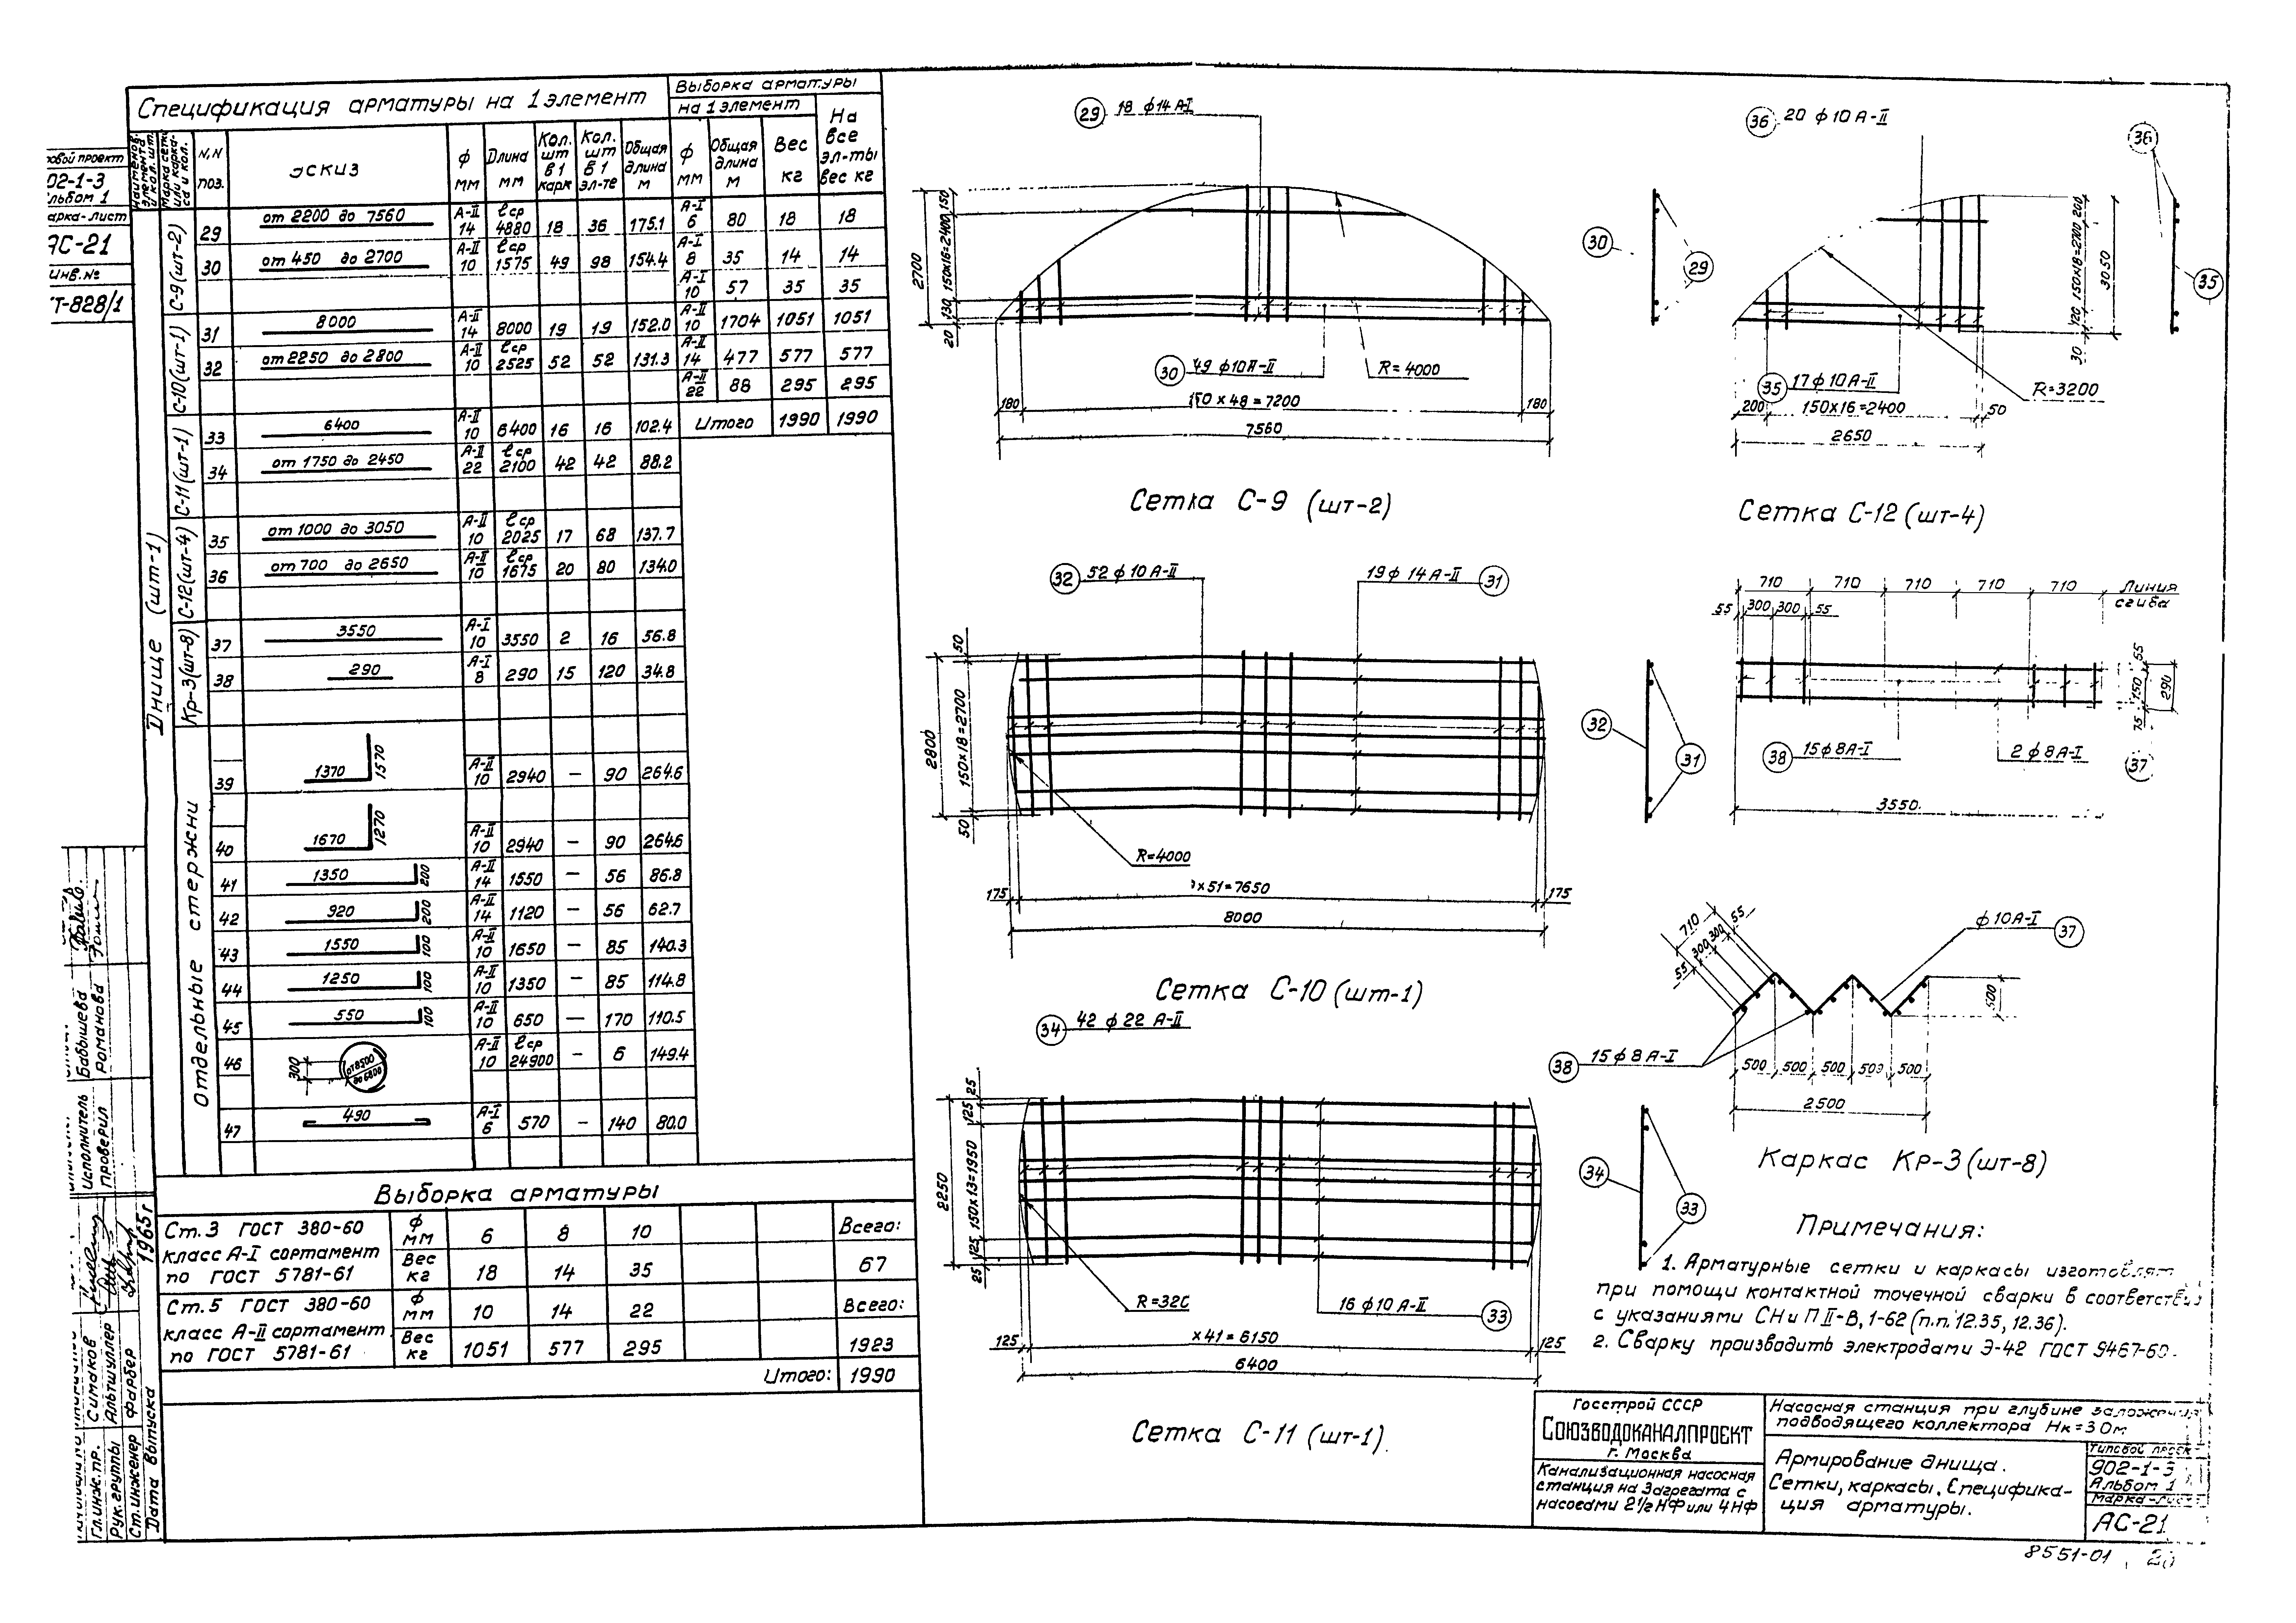 Спецификация арматуры на 1 элемент
Выборка арматуры
на 1 элемент
На все эл-ты вес кг
Наименов. элемента и кол. шт.
Марка сетки или каркаса и кол.
N,N поз.
Эскиз
ф мм
Длина мм
Кол. шт в 1 карк
Кол. шт в 1 эл-те
Общая длина м
ф мм
Общая длина м
Вес кг
Днище (шт-1)
С-9 (шт-2)
29 от 2200 до 7560 А-II 14 ℓср 4880 18 36 175.1
30 от 450 до 2700 А-II 10 ℓср 1575 49 98 154.4
С-10 (шт-1)
31 8000 А-II 14 8000 19 19 152.0
32 от 2250 до 2800 А-II 10 ℓср 2525 52 52 131.3
С-11 (шт-1)
33 6400 А-II 10 6400 16 16 102.4
34 от 1750 до 2450 А-II 22 ℓср 2100 42 42 88.2
С-12 (шт-4)
35 от 1000 до 3050 А-II 10 ℓср 2025 17 68 137.7
36 от 700 до 2650 А-II 10 ℓср 1675 20 80 134.0
Кр-3 (шт-8)
37 3550 А-I 10 3550 2 16 56.8
38 290 А-I 8 290 15 120 34.8
Отдельные стержни
39 1370 1570 А-II 10 2940 – 90 264.6
40 1670 1270 А-II 10 2940 – 90 264.6
41 1350 200 А-II 14 1550 – 56 86.8
42 920 200 А-II 14 1120 – 56 62.7
43 1550 100 А-II 10 1650 – 85 140.3
44 1250 100 А-II 10 1350 – 85 114.8
45 550 100 А-II 10 650 – 170 110.5
46 300 от 8500 до 6800 А-II 10 ℓср 24900 – 6 149.4
47 490 А-I 6 570 – 140 80.0
А-I 6 80 18 18
А-I 8 35 14 14
А-I 10 57 35 35
А-II 10 1704 1051 1051
А-II 14 477 577 577
А-II 22 88 295 295
Итого 1990 1990
Выборка арматуры
Ст.3 ГОСТ 380-60
класс А-I сортамент
по ГОСТ 5781-61
ф мм 6 8 10 Всего:
Вес кг 18 14 35 67
Ст.5 ГОСТ 380-60
класс А-II сортамент
по ГОСТ 5781-61
ф мм 10 14 22 Всего:
Вес кг 1051 577 295 1923
Итого: 1990
29 18 ф14 А-I
2700
150
150х16=2400
130
20
30 49 ф10 А-II
R=4000
180
150 х 48 = 7200
180
7560
30
29
Сетка С-9 (шт-2)
36 20 ф 10 А-II
200
150х18=2700
120
30
3050
35 17 ф 10 А-II
R=3200
200
150х16=2400
50
2650
36
35
Сетка С-12 (шт-4)
32 52 ф 10 А-II
19 ф 14 А-II 31
50
150х18=2700
50
2800
R=4000
175
х51=7650
175
8000
32
31
Сетка С-10 (шт-1)
710 710 710 710 710 Линия сгиба
55 300 300 55
55
150
75
290
38 15 ф 8 А-I
2 ф 8 А-I
37
3550
710
55
300
300
55
ф 10 А-I 37
500
38 15 ф 8 А-I
500 500 500 500 500
2500
Каркас Кр-3 (шт-8)
34 42 ф 22 А-II
25
125
150х13=1950
125
25
2250
R=320
16 ф 10 А-II 33
125
х41=6150
125
6400
34
33
Сетка С-11 (шт-1).
Примечания:
1. Арматурные сетки и каркасы изготовлят
при помощи контактной точечной сварки в соответствии
с указаниями СНиП II-В, 1-62 (п.п. 12.35, 12.36).
2. Сварку производить электродами Э-42 ГОСТ 9467-60.
Госстрой СССР
СОЮЗВОДОКАНАЛПРОЕКТ
г. Москва
Канализационная насосная
станция на 3 агрегата с
насосами 2½ НФ или 4НФ
Насосная станция при глубине заложения
подводящего коллектора Нк=3.0м
Армирование днища.
Сетки, каркасы. Специфика-
ция арматуры.
Типовой проек
902-1-3
Альбом 1
Марка-лист
АС-21
8551-01
20
овой проект
02-1-3
льбом 1
арка-лист
АС-21
Инв.№
Т-828/1
Гл.инж.пр. Симаков
Рук. группы Альтшуллер
Ст. инженер Фарбер
Дата выпуска 1965г
Исполнитель Бабышева
Проверил Романова